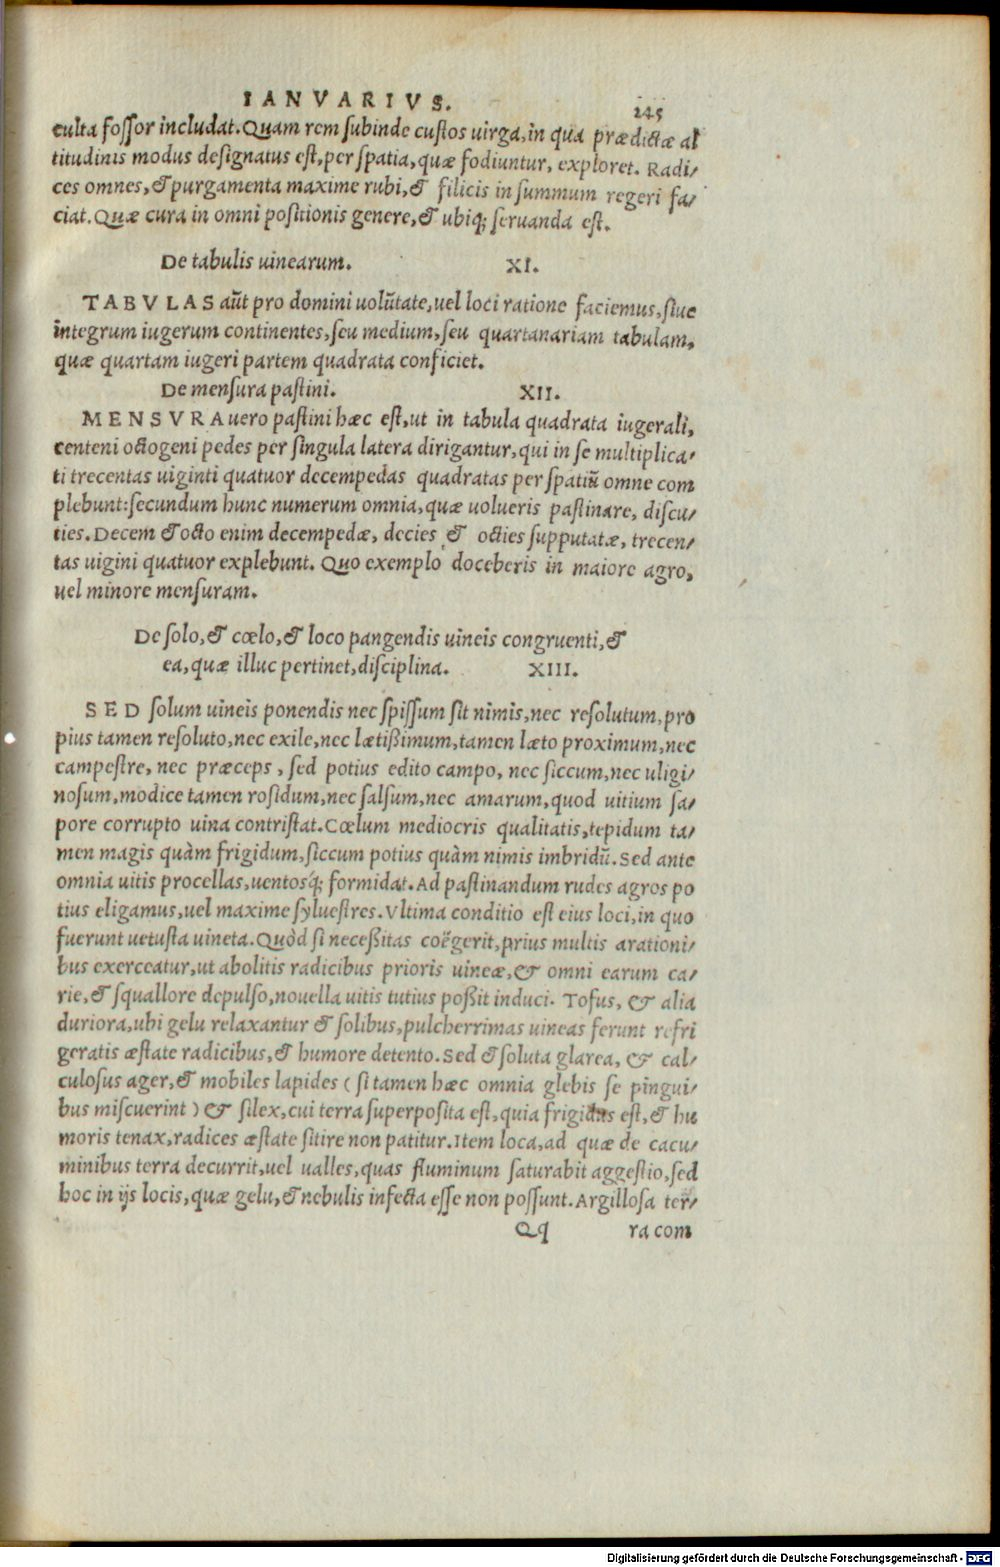 IANVARIVS. 245
culta fossor includat. Quam rem subinde custos uirga, in qua prædictæ al
titudinis modus designatus est, per spatia, quæ fodiuntur, exploret. Radi/
ces omnes, & purgamenta maxime rubi, & filicis in summum regeri fa/
ciat. Quæ cura in omni positionis genere, & ubiq; seruanda est.
De tabulis uinearum. XI.
TABVLAS aūt pro domini uolūtate, uel loci ratione faciemus, siue
integrum iugerum continentes, seu medium, seu quartanariam tabulam,
quæ quartam iugeri partem quadrata conficiet.
De mensura pastini. XII.
MENSVRA uero pastini hæc est, ut in tabula quadrata iugerali,
centeni octogeni pedes per singula latera dirigantur, qui in se multiplica/
ti trecentas uiginti quatuor decempedas quadratas per spatiū omne com
plebunt: secundum hunc numerum omnia, quæ uolueris pastinare, discu/
ties. Decem & octo enim decempedæ, decies & octies supputatæ, trecen/
tas uigini quatuor explebunt. Quo exemplo doceberis in maiore agro,
uel minore mensuram.
De solo, & cœlo, & loco pangendis uineis congruenti, &
ea, quæ illuc pertinet, disciplina. XIII.
SED solum uineis ponendis nec spissum sit nimis, nec resolutum, pro
pius tamen resoluto, nec exile, nec lætißimum, tamen læto proximum, nec
campestre, nec præceps, sed potius edito campo, nec siccum, nec uligi/
nosum, modice tamen rosidum, nec salsum, nec amarum, quod uitium sa/
pore corrupto uina contristat. Cœlum mediocris qualitatis, tepidum ta/
men magis quàm frigidum, siccum potius quàm nimis imbridū. Sed ante
omnia uitis procellas, uentosq́; formidat. Ad pastinandum rudes agros po
tius eligamus, uel maxime syluestres. Vltima conditio est eius loci, in quo
fuerunt uetusta uineta. Quòd si neceßitas coëgerit, prius multis arationi/
bus exerceatur, ut abolitis radicibus prioris uineæ, & omni earum ca/
rie, & squallore depulso, nouella uitis tutius poßit induci. Tofus, & alia
duriora, ubi gelu relaxantur & solibus, pulcherrimas uineas ferunt refri
geratis æstate radicibus, & humore detento. Sed & soluta glarea, & cal/
culosus ager, & mobiles lapides (si tamen hæc omnia glebis se pingui/
bus miscuerint) & silex, cui terra superposita est, quia frigidus est, & hu
moris tenax, radices æstate sitire non patitur. Item loca, ad quæ de cacu/
minibus terra decurrit, uel ualles, quas fluminum saturabit aggestio, sed
hoc in ijs locis, quæ gelu, & nebulis infecta esse non possunt. Argillosa ter/
Qq ra com
Digitalisierung gefördert durch die Deutsche Forschungsgemeinschaft - DFG